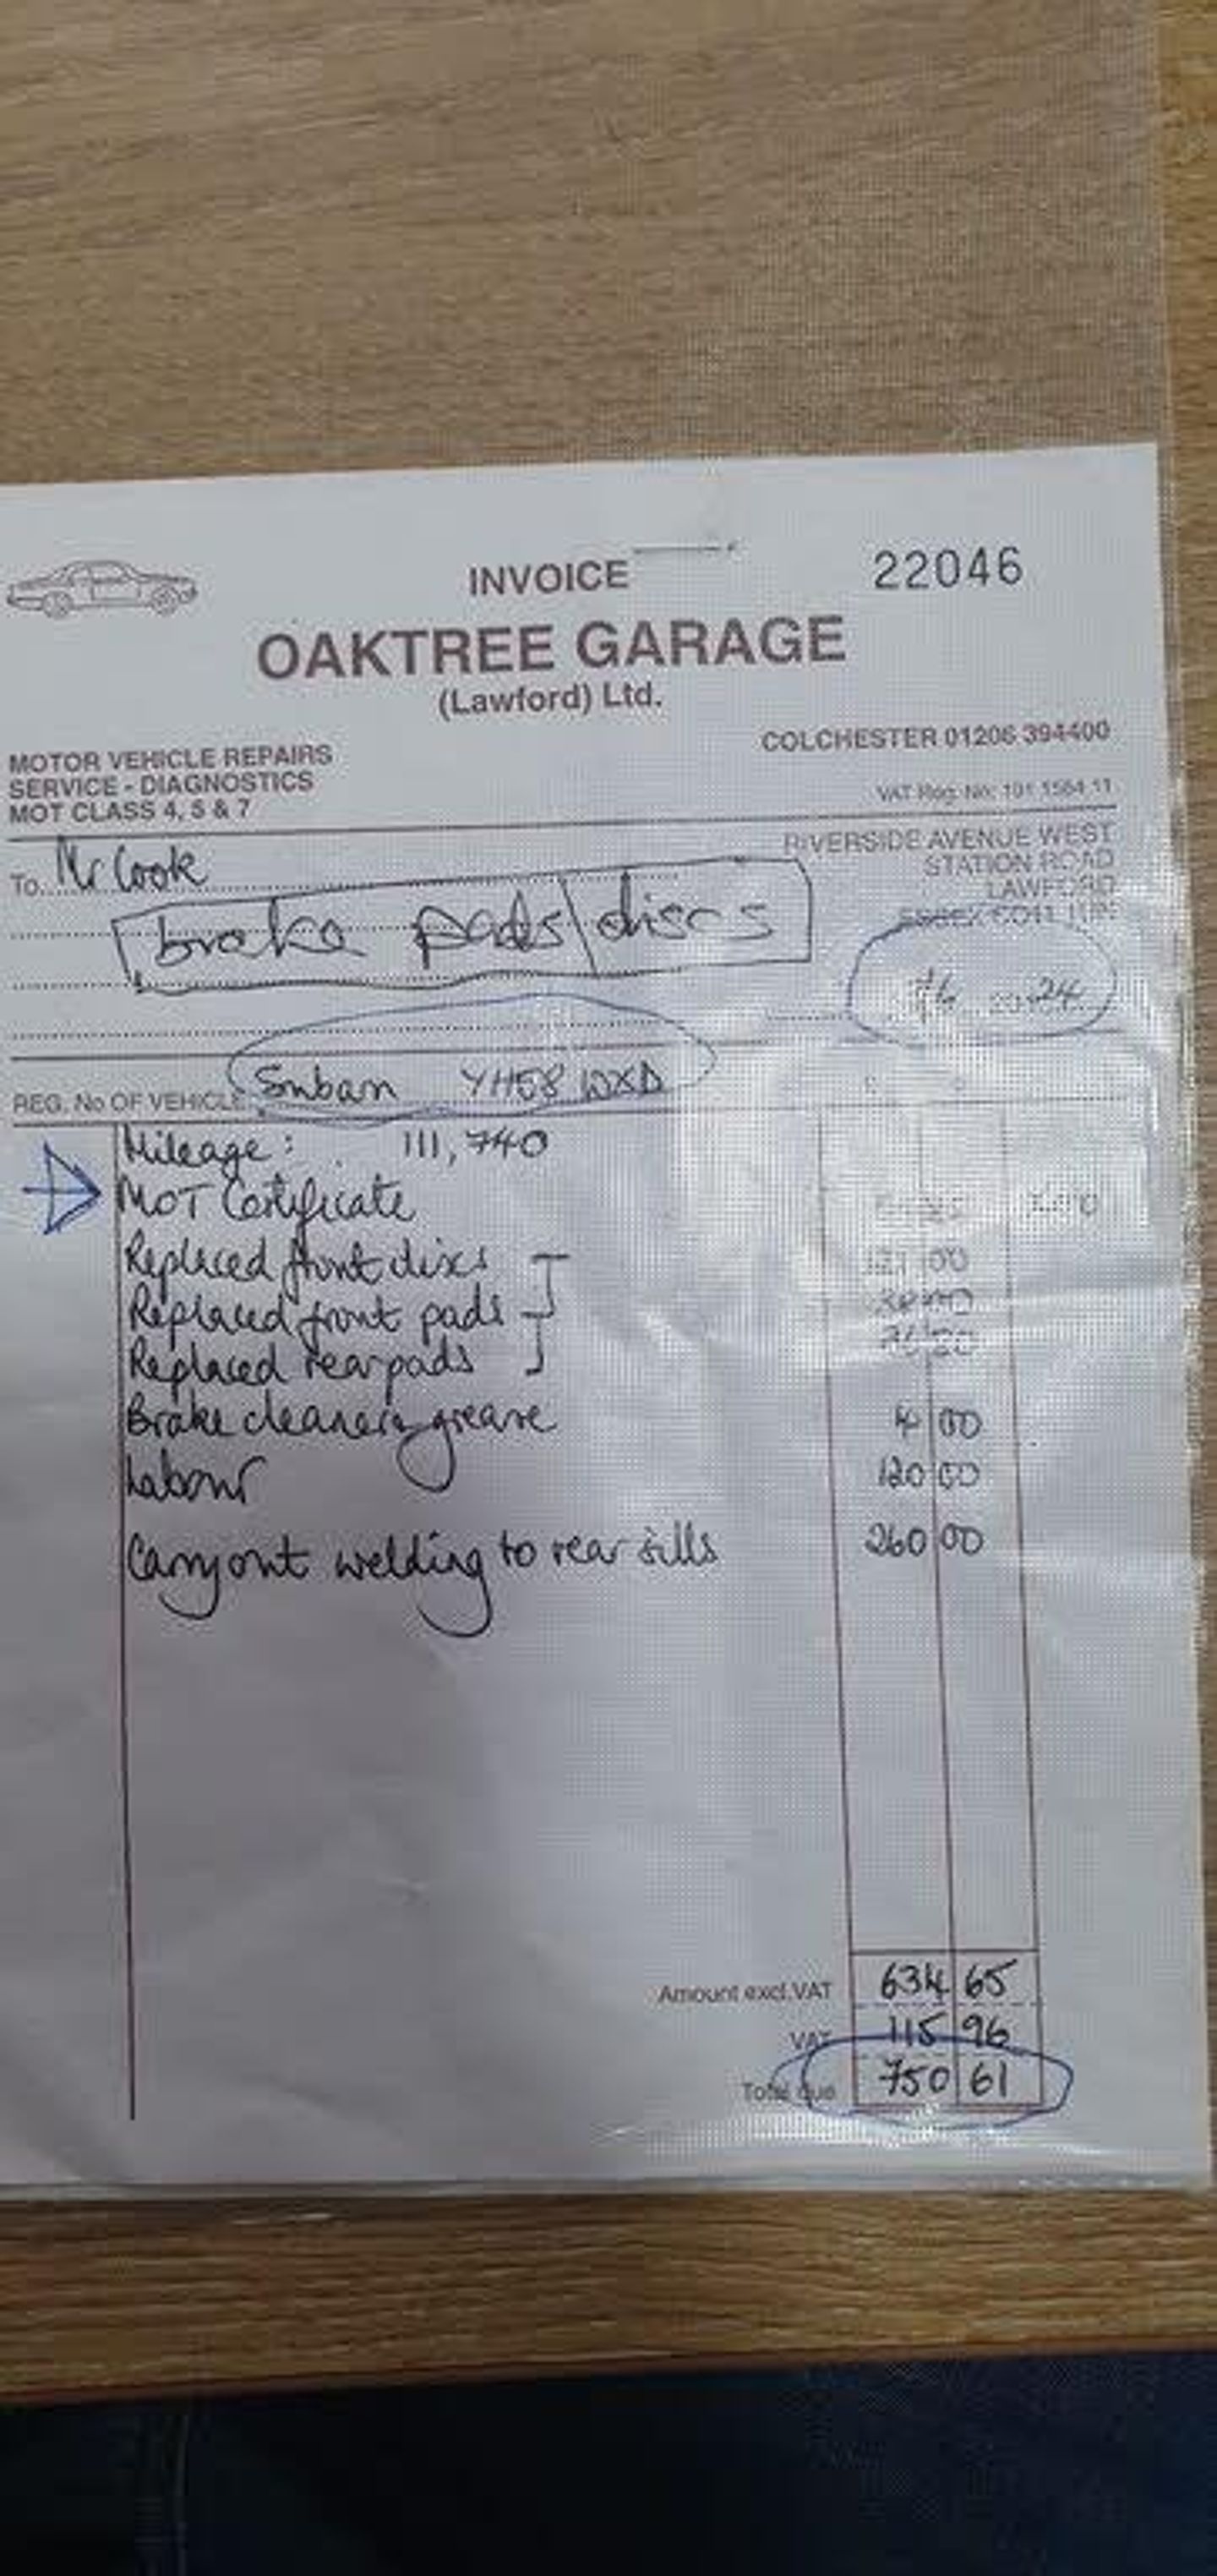 INVOICE
22046
OAKTREE GARAGE
(Lawford) Ltd.
MOTOR VEHICLE REPAIRS
SERVICE - DIAGNOSTICS
MOT CLASS 4, 5 & 7
COLCHESTER 01206 394400
VAT Reg. No: 191 1564 11
RIVERSIDE AVENUE WEST
STATION ROAD
LAWFORD
ESSEX CO11
To Mr Cook
brake pads/discs
20 24
REG. No OF VEHICLE Subaru YH58 WXD
Mileage: 111,740
MOT Certificate
Replaced front discs 121 00
Replaced front pads
Replaced rear pads
Brake cleaner, grease 4 00
Labour 120 00
Carry out welding to rear sills 260 00
Amount excl. VAT 634 65
VAT 115 96
Total due 750 61